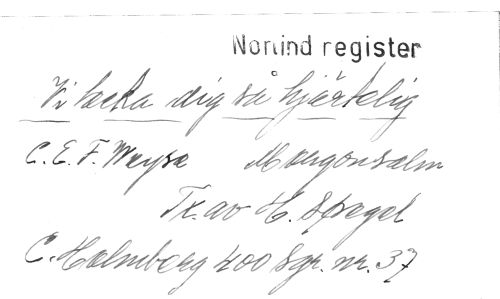 Nonind register
Vi tacka dig så hjärtelig
C. E. F. Weyse Morgonsalm
Tx. av H. Spegel
C. Holmberg 400 Sgr. nr. 37